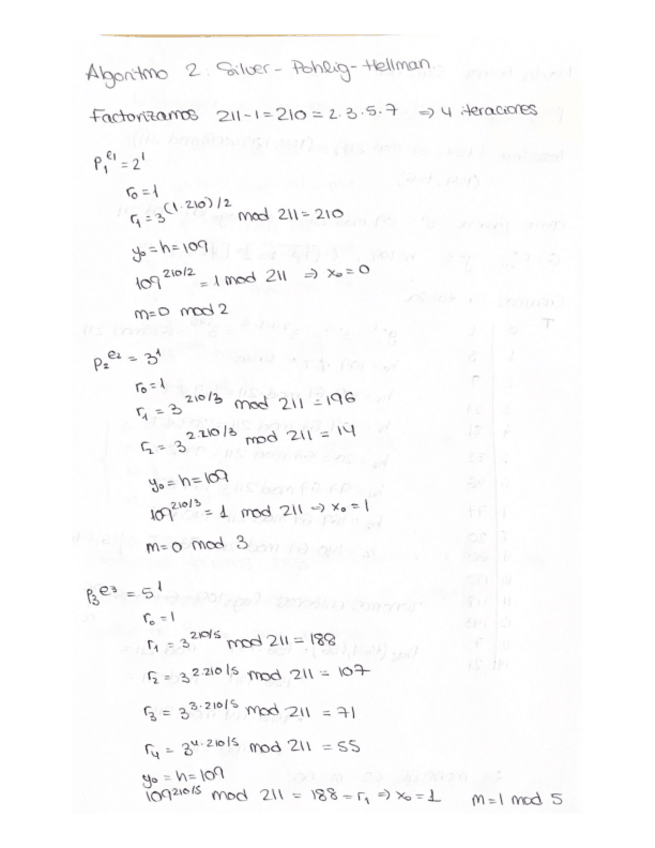 Algoritmo 2: Silver-Pohlig-Hellman
Factorizamos 211-1=210=2·3·5·7 ⇒ 4 iteraciones
p₁^e₁ = 2¹
r₀ = 1
r₁ = 3^(1·210)/2 mod 211 = 210
y₀ = h = 109
109^210/2 = 1 mod 211 ⇒ x₀ = 0
m=0 mod 2
p₂^e₂ = 3¹
r₀ = 1
r₁ = 3^210/3 mod 211 = 196
r₂ = 3^2·210/3 mod 211 = 14
y₀ = h = 109
109^210/3 = 1 mod 211 ⇒ x₀ = 1
m=0 mod 3
p₃^e₃ = 5¹
r₀ = 1
r₁ = 3^210/5 mod 211 = 188
r₂ = 3^2·210/5 mod 211 = 107
r₃ = 3^3·210/5 mod 211 = 71
r₄ = 3^4·210/5 mod 211 = 55
y₀ = h = 109
109^210/5 mod 211 = 188 = r₁ ⇒ x₀ = 1 m=1 mod 5